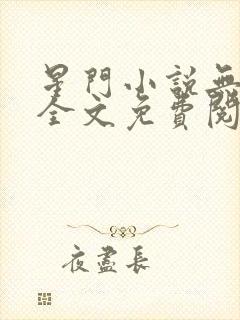 星門小說無
全文免費閱
夜盡長